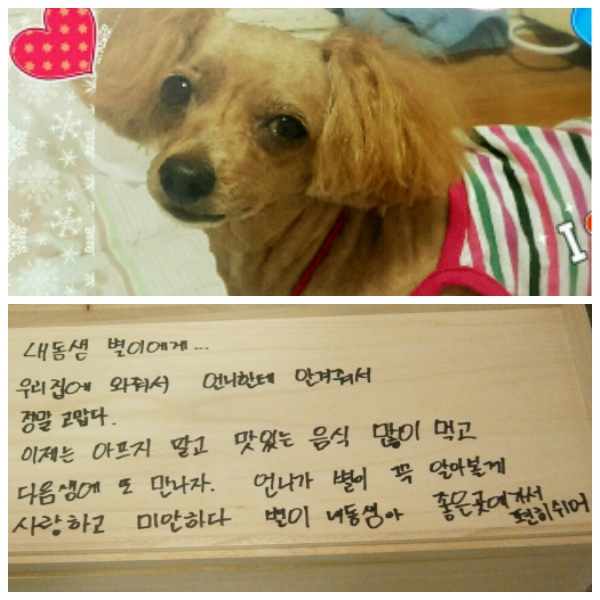 I
내동생 별이에게...
우리집에 와줘서 언니한테 안겨줘서
정말 고맙다.
이제는 아프지 말고 맛있는 음식 많이 먹고
다음생에 또 만나자. 언니가 별이 꼭 알아볼게
사랑하고 미안하다 별이 내동생아 좋은곳에가서
편히쉬어